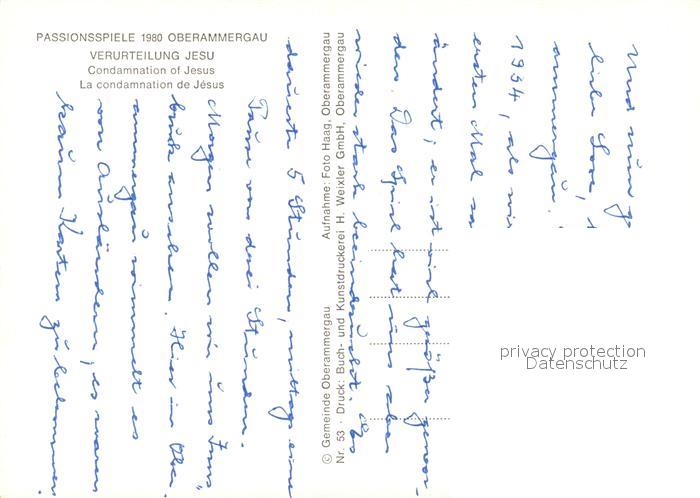 PASSIONSSPIELE 1980 OBERAMMERGAU
VERURTEILUNG JESU
Condamnation of Jesus
La condamnation de Jésus
© Gemeinde Oberammergau Aufnahme: Foto Haag, Oberammergau
Nr. 53 · Druck: Buch- und Kunstdruckerei H. Weixler GmbH, Oberammergau
Und nun
liebe
ammergau.
1934, als wir
ersten Mal
ändert; er ist viel größer gewor-
den. Das Spiel hat uns aber
wieder stark beeindruckt. Es
dauerte 5 Stunden, mittags eine
Pause von drei Stunden.
Morgen wollen wir uns
ansehen. Hier in Ober-
ammergau wimmelt es
von Ausländern, es waren
kaum Karten zu bekommen
privacy protection
Datenschutz